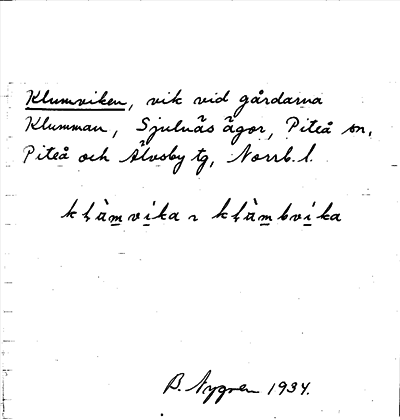 Klumviken, vik vid gårdarna
Klumman, Sjulnäs ägor, Piteå sn,
Piteå och Älvsby tg, Norrb. l.
kḷàm̲vi̲ka ~ kḷàm̲bvi̲ka
B. Nygren 1934.